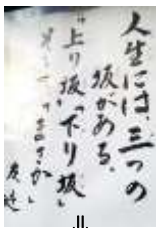 人生には、三つの
坂がある、
"上り坂""下り坂"
「まさか」